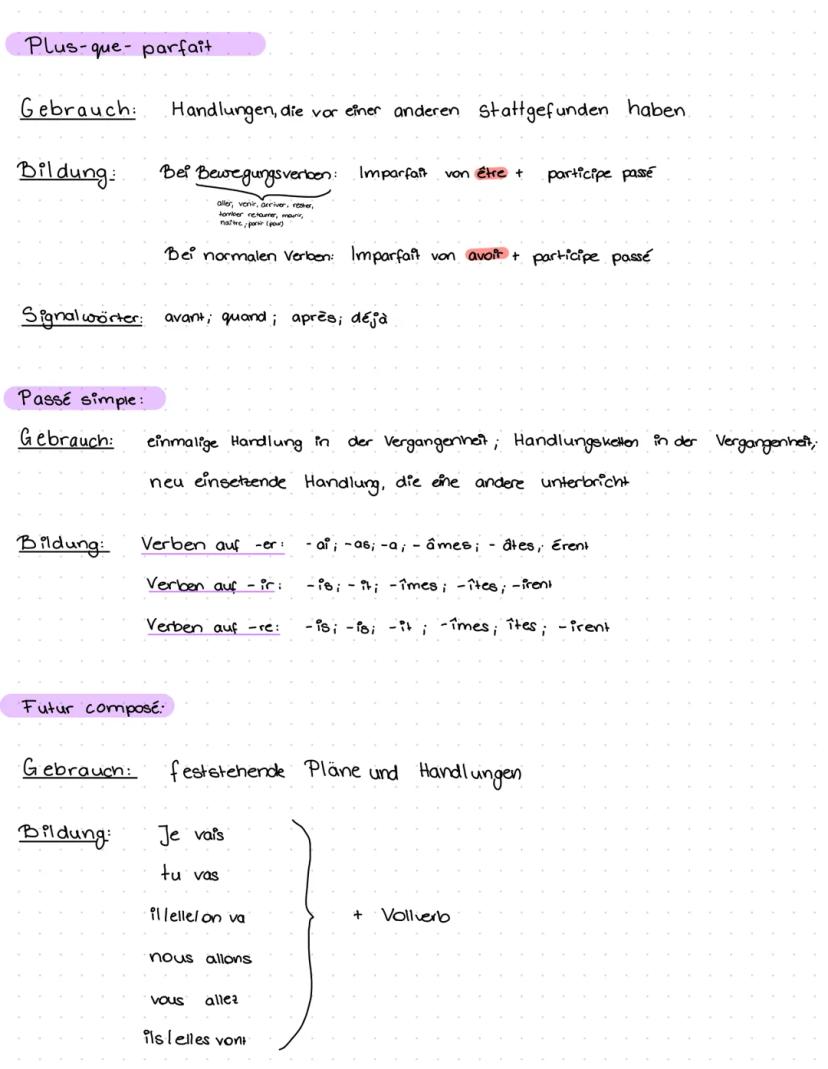 Plus-que-parfait
Gebrauch: Handlungen, die vor einer anderen stattgefunden haben
Bildung: Bei Bewegungsverben: Imparfait von être + participe passé
aller, venir, arriver, rester,
tomber retourner, mourir,
naître, partir (pour)
Bei normalen Verben: Imparfait von avoir + participe passé
Signalwörter: avant; quand; après; déjà
Passé simple:
Gebrauch: einmalige Handlung in der Vergangenheit; Handlungsketten in der Vergangenheit;
neu einsetzende Handlung, die eine andere unterbricht
Bildung: Verben auf -er: -ai; -as; -a; -âmes; -âtes; érent
Verben auf -ir: -is; -it; -îmes; -îtes; -irent
Verben auf -re: -is; -is; -it; -îmes; îtes; -irent
Futur composé:
Gebrauch: feststehende Pläne und Handlungen
Bildung: Je vais
tu vas
il/elle/on va + Vollverb
nous allons
vous allez
ils/elles vont